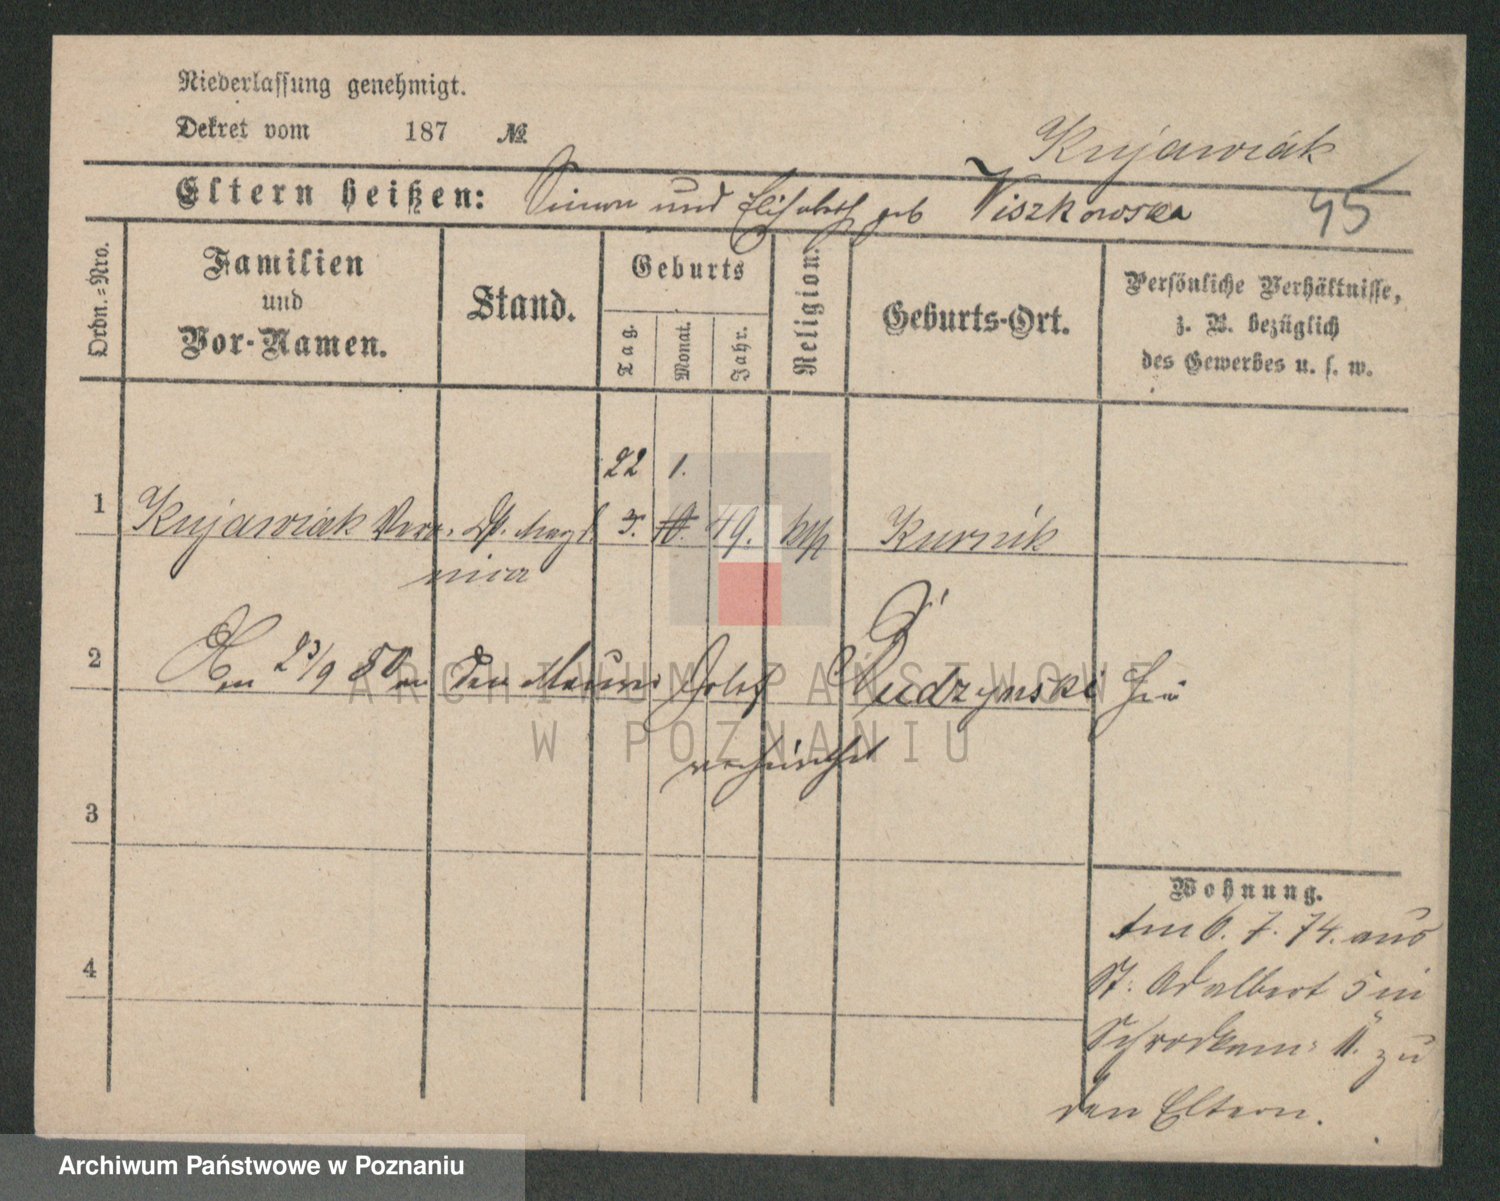 Niederlassung genehmigt.
Dekret vom 187 №
Kujawiak
Eltern heißen: Simon und Elisabeth geb Viszkowska 45
Ordn.=Nro. Familien und Vor-Namen. Stand. Geburts Tag. Monat. Jahr. Religion. Geburts-Ort. Persönliche Verhältnisse, z. B. bezüglich des Gewerbes u. s. w.
22 1.
1 Kujawiak Vero= 49. kath Kurnik
nica
2 Am 23/9 80 den Maurer Dudzynski
3
Wohnung.
Am 6. 7. 74. aus
St. Adalbert 5 in
4
Schrodkam: 11. zu
den Eltern.
ARCHIWUM PAŃSTWOWE
W POZNANIU
Archiwum Państwowe w Poznaniu